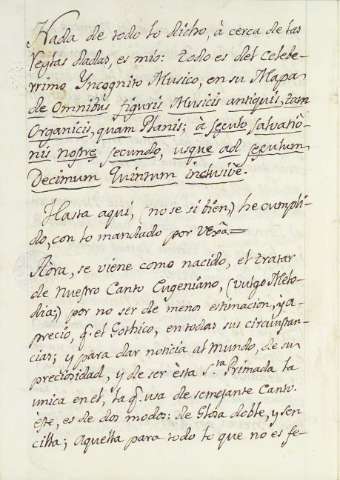 Nada de todo lo dicho, à cerca de las
Reglas dadas, es mio: todo es del celebe-
rrimo Yncognito Musico, en su Mapa
de Omnibus figuris Musicis antiquis, tam
Organicis, quam Planis; à seculo salvatiô-
nis nostre secundo, usque ad seculum
Decimum Quintum inclusivê.
Hasta aqui, (no se si bien,) he cumpli-
do, con lo mandado por Vexâ.=
Aora, se viene como nacido, el tratar
de nuestro Canto Eugeniano, (vulgo Melo-
dia;) por no ser de menos estimacion, y a-
precio, q.e el Gothico, en todas sus circunstan-
cias; y para dar noticia al Mundo, de su
preciosidad, y de ser ésta S.ta Primada la
unica en el, la q.e usa de semejante Canto.
éste, es de dos modos: de Glosa doble, y sen-
cilla; aquella para todo lo que no es fe-